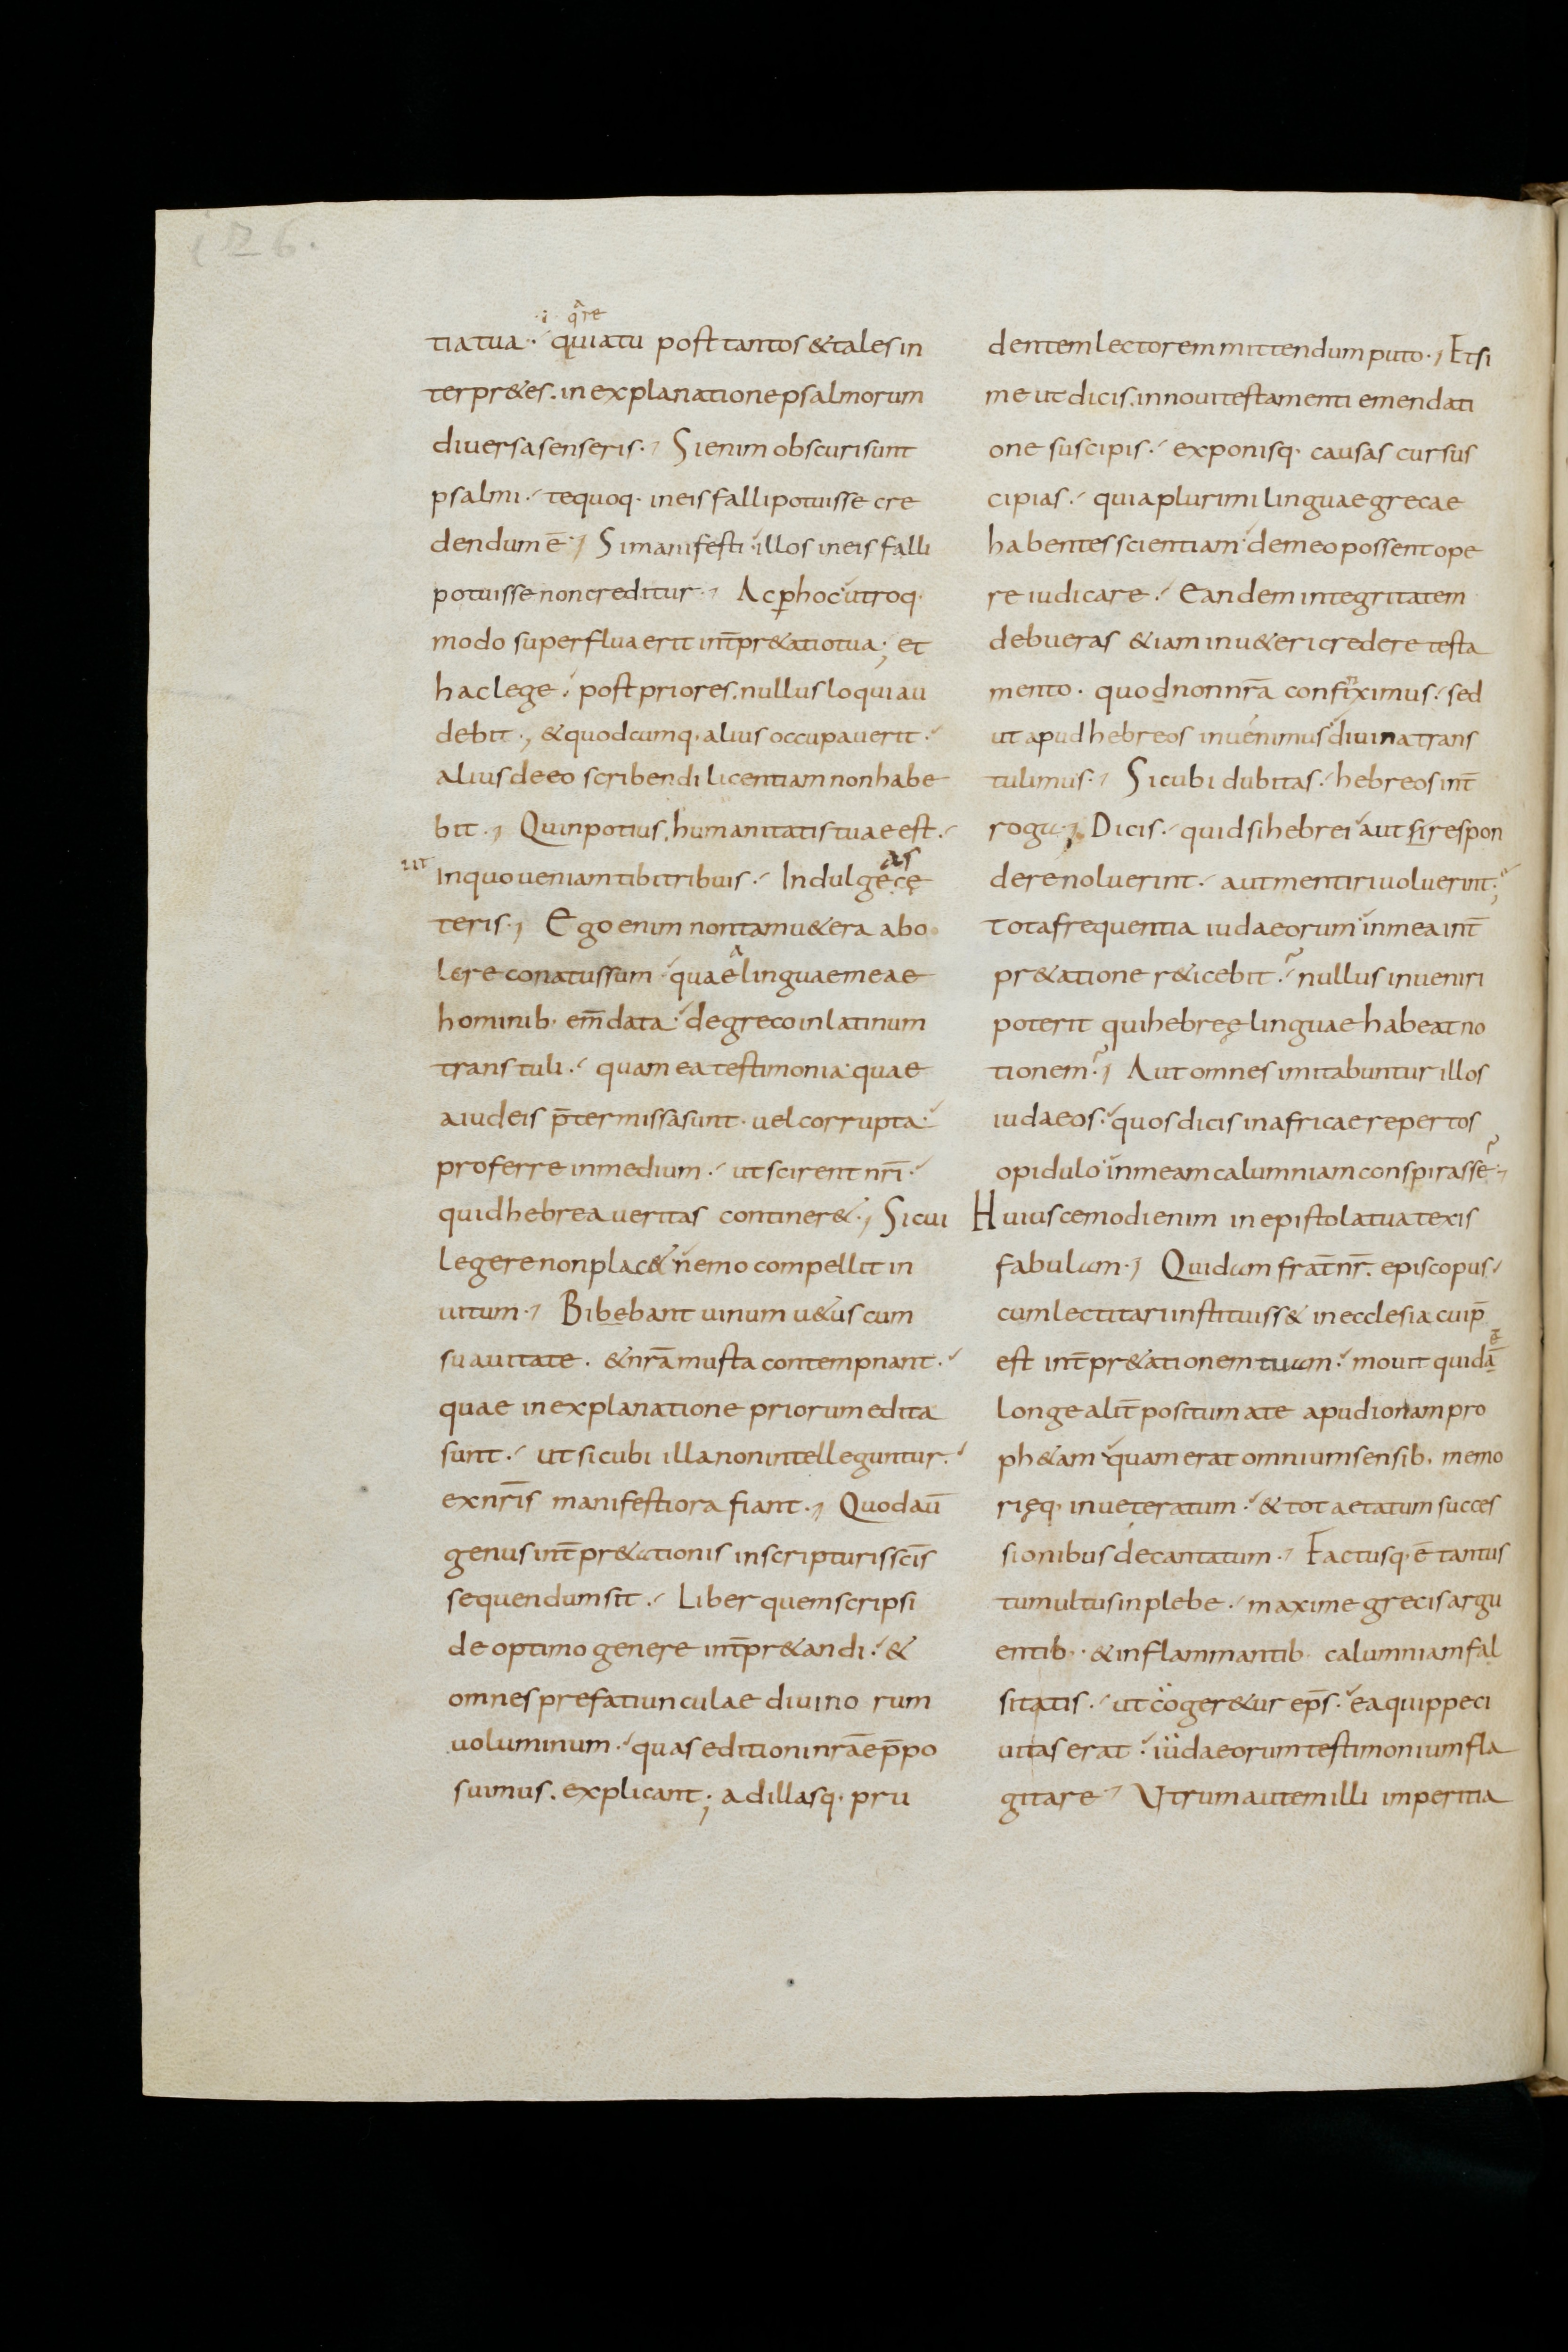 126.
·i· q̂re
tiatua· quiatu post tantos &tales in
terpr&es. in explanatione psalmorum
diuersa senseris·, Si enim obscuri sunt
psalmi ·/ tequoq· ineis falli potuisse cre
dendum ē·, Si manifesti· illos ineis falli
potuisse non creditur·, Ac ꝑhoc utroq·
modo superflua erit int̄pr&atio tua; et
hac lege· post priores. nullus loqui au
debit·, & quodcumq· alius occupauerit·/
alius deeo scribendi licentiam non habe
bit·, Quin potius, humanitatis tuae est·/
ut as
In quo ueniam tibi tribuis·/ Indulgece
teris·, Ego enim non tam u&era abo
lere conatus sum· quae linguae meae
hominib· em̄data· de greco in latinum
trans tuli·/ quam ea testimonia· quae
a iudeis p̄termissa sunt· uel corrupta·/
proferre in medium·/ ut scirent nr̄i·/
quid hebrea ueritas contineret·, Sicui
legere non plac& nemo compellit in
uitum·, Bibebant uinum u&us cum
suauitate. & nr̄a musta contempnant·/
quae in explanatione priorum edita
sunt·/ ut sicubi illa non intelleguntur·/
ex nr̄is manifestiora fiant·, Quod aū
genus int̄pr&ationis in scripturis sc̄is
sequendum sit·/ Liber quem scripsi
de optimo genere int̄pr&andi·/ &
omnes prefatiunculae diuino rum
uoluminum·/ quas editioni nr̄ae p̄po
suimus. explicant; ad illasq· pru
dentem lectorem mittendum puto·, Et si
me ut dicis. in noui testamenti emendati
one suscipis·/ exponisq· causas cur sus
cipias·/ quia plurimi linguae grecae
habentes scientiam· de meo possent ope
re iudicare·/ Eandem integritatem
debueras &iam in u&eri credere testa
mento· quod non nr̄a confiximus·/ sed
ut apud hebreos inuenimus diuina trans
tulimus·, Sicubi dubitas·/ hebreos int̄
roga·, Dicis·/ quid si hebrei aut si respon
dere noluerint·/ aut mentiri uoluerint;
Tota frequentia iudaeorum in mea int̄
pr&atione r&icebit·/ nullus inueniri
poterit qui hebreę linguae habeat no
tionem·, Aut omnes imitabuntur illos
iudaeos·/ quos dicis in africae repertos
opidulo in meam calumniam conspirasse·,
Huiuscemodi enim in epistola tua texis
fabulam·, Quidam frat̄ nr̄. episcopus·/
cum lectitari instituiss& in ecclesia cui p̄
est int̄pr&ationem tuam·/ mouit quidā
longe alit̄ positum a te apud ionam pro
ph&am quam erat omnium sensib· memo
rięq· inueteratum·/ & tot aetatum succes
sionibus decantatum·, Factusq· ē tantus
tumultus in plebe·/ maxime grecis argu
entib· & inflammantib· calumniam fal
sitatis·/ ut coger&ur ep̄s·/ ea quippe ci
uitas erat·/ iudaeorum testimonium fla
gitare·, Vtrum autem illi imperitia